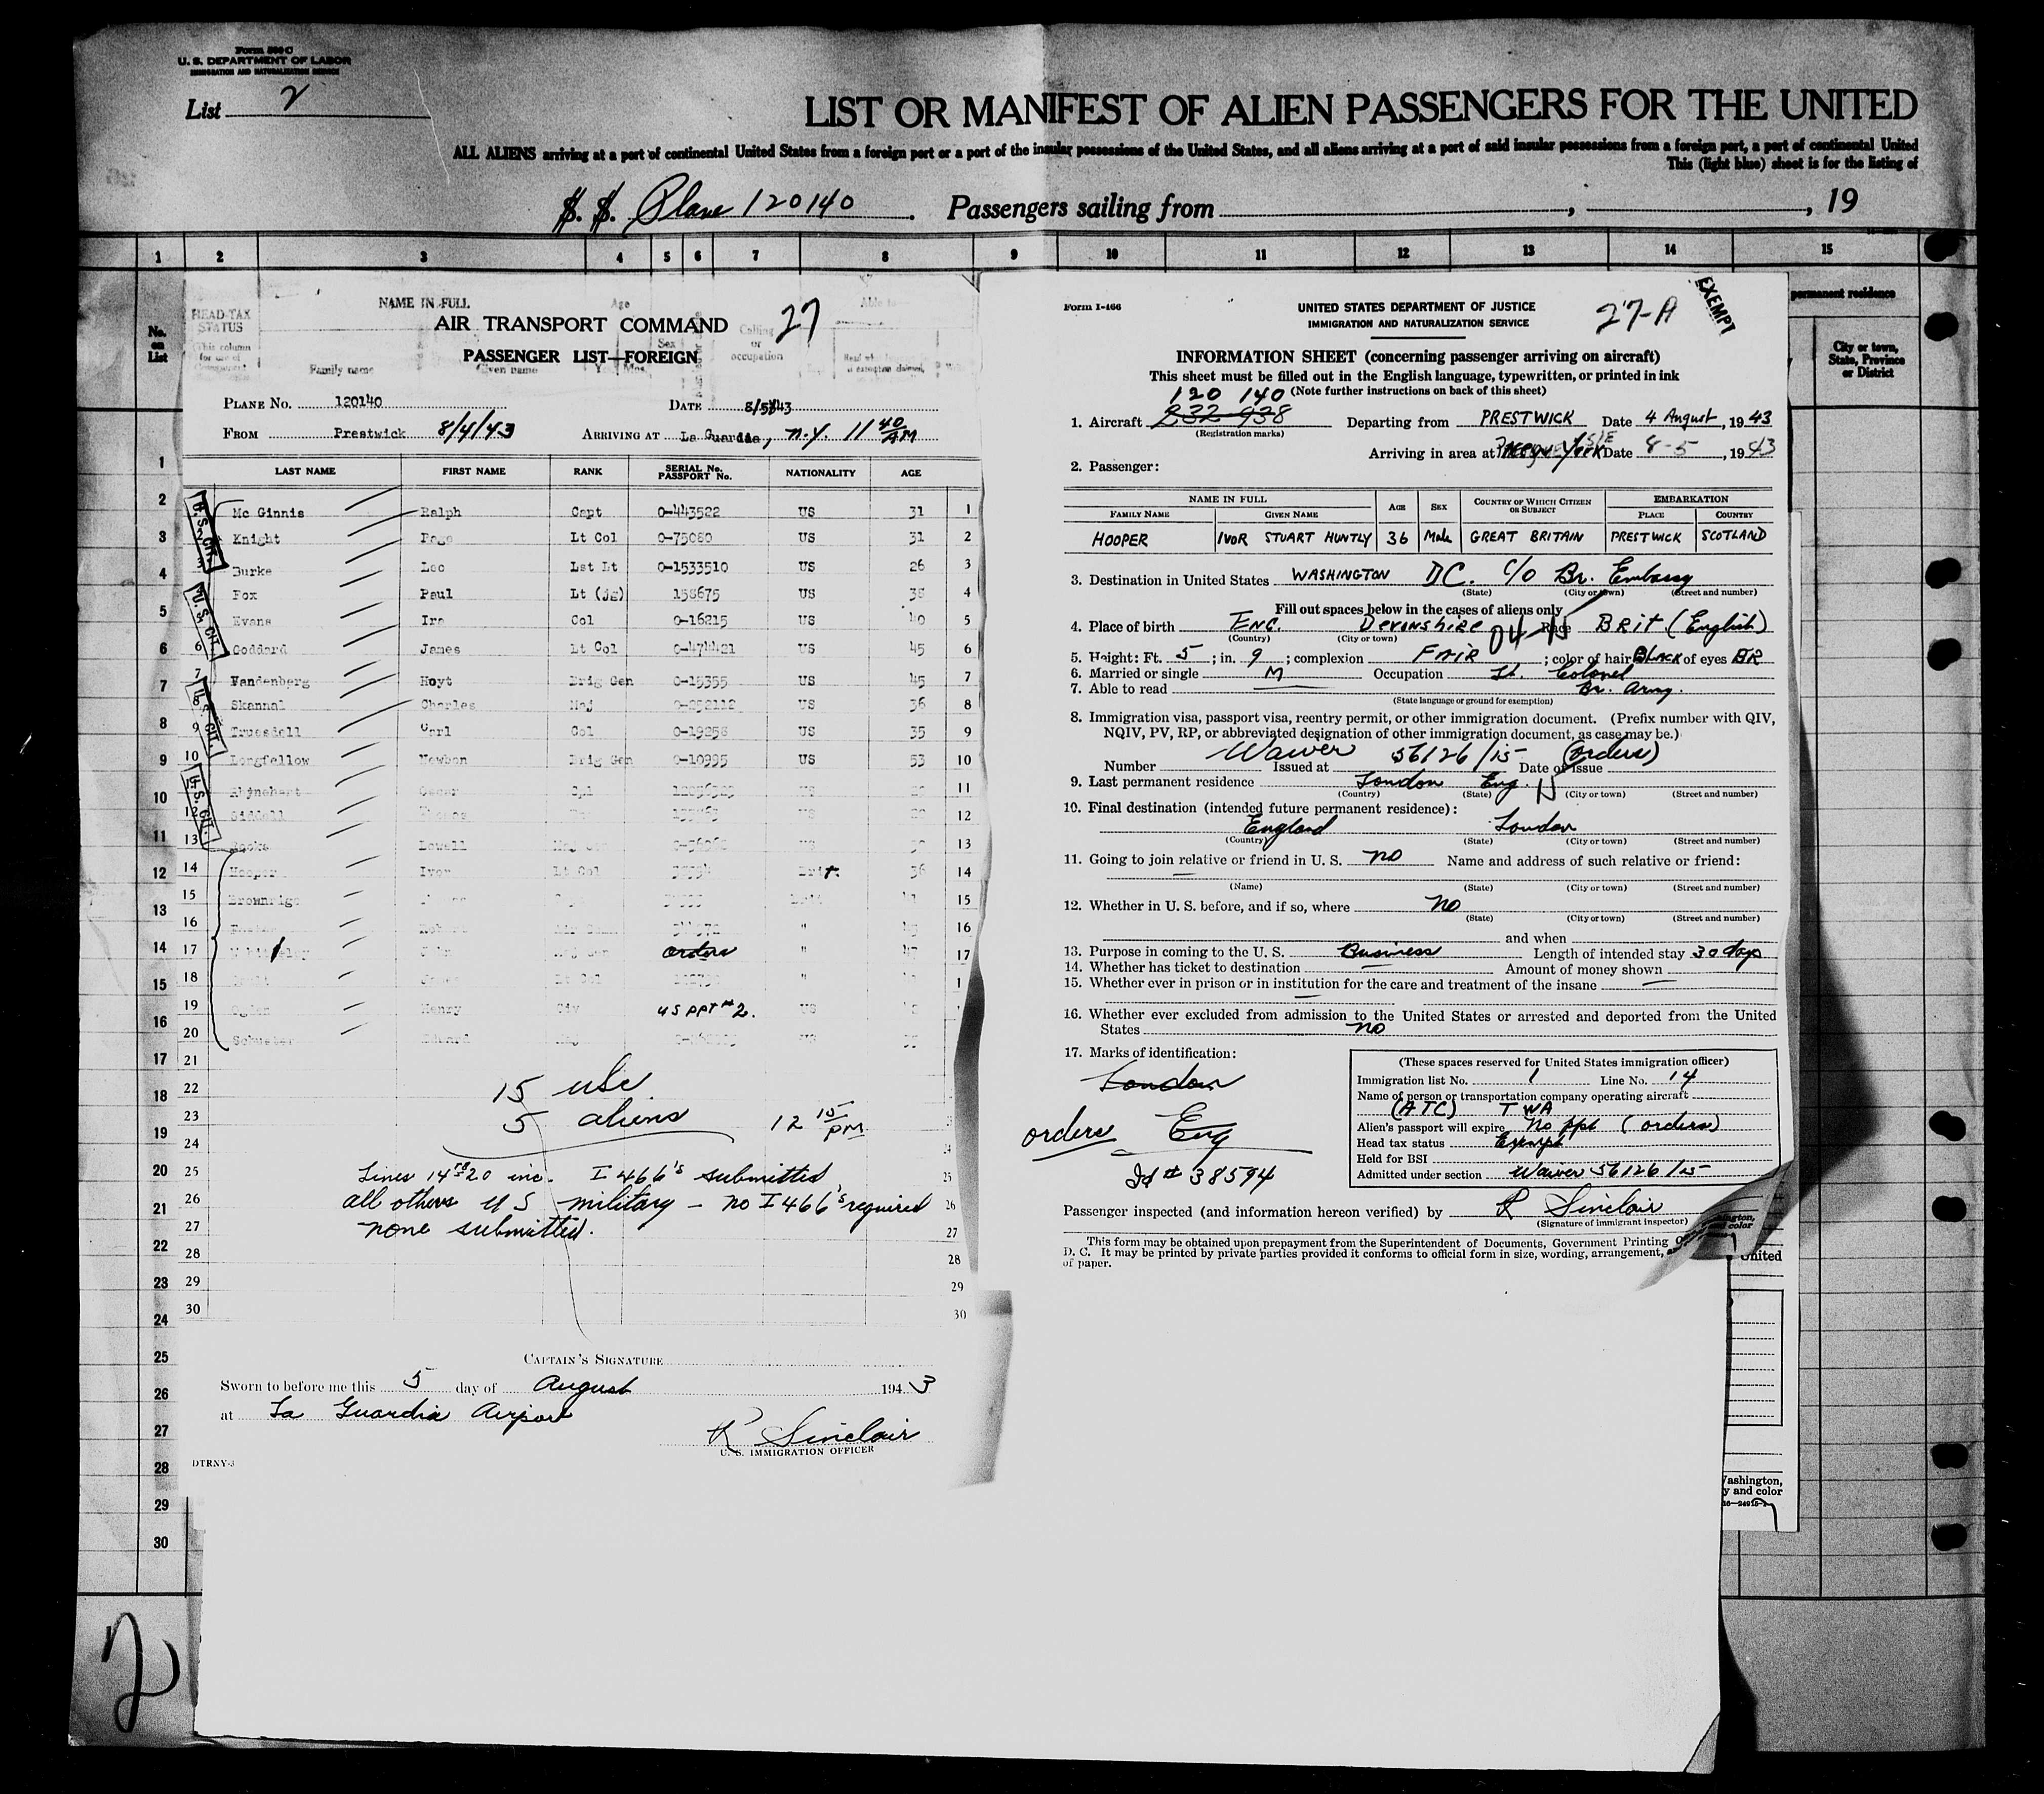 Form 500 C
U. S. DEPARTMENT OF LABOR
IMMIGRATION AND NATURALIZATION SERVICE
List 2
LIST OR MANIFEST OF ALIEN PASSENGERS FOR THE UNITED
ALL ALIENS arriving at a port of continental United States from a foreign port or a port of the insular possessions of the United States, and all aliens arriving at a port of said insular possessions from a foreign port, a port of continental United
This (light blue) sheet is for the listing of
S. S. Plane 120140. Passengers sailing from , , 19
1 2 3 4 5 6 7 8 9 10 11 12 13 14 15
No. on List
HEAD-TAX STATUS
NAME IN FULL
Age
Family name Given name
Sex
Calling or occupation
permanent residence
City or town, State, Province or District
AIR TRANSPORT COMMAND 27
PASSENGER LIST—FOREIGN
PLANE NO. 120140 DATE 8/5/43
FROM Prestwick 8/4/43 ARRIVING AT La Guardia, N.Y. 11 40 AM
LAST NAME FIRST NAME RANK SERIAL No. PASSPORT No. NATIONALITY AGE
U. S. CIT.
Mc Ginnis Ralph Capt O-443522 US 31 1
Knight Page Lt Col O-75080 US 31 2
Burke Leo 1st Lt O-1533510 US 26 3
Fox Paul Lt (jg) 158675 US 38 4
U. S. CIT.
Evans Ira Col O-16215 US 40 5
Goddard James Lt Col O-474421 US 45 6
Vandenberg Hoyt Brig Gen O-15355 US 45 7
U. S. CIT.
Skannal Charles Maj O-252112 US 36 8
Truesdell Karl Col O-19256 US 35 9
Longfellow Newton Brig Gen O-10995 US 53 10
U. S. CIT.
Rhinehart Oscar Cpl 11
Siddell Thomas 12
Rooks Lowell Maj Gen 13
Hooper Ivor Lt Col 38594 Brit 36 14
Brownrigg 15
Robert " 16
John Maj Gen orders " 47 17
Lt Col " 18
Ogden Henry Civ US PPT # 2. US
Schuster Edward US
15 USC
5 aliens 12 15 PM
Lines 14 to 20 inc. I 466's submitted
all others U S military - no I 466's required
none submitted.
CAPTAIN'S SIGNATURE
Sworn to before me this 5 day of August 194 3
at La Guardia Airport
R Sinclair
U. S. IMMIGRATION OFFICER
DTRNY-3
2
Form I-466
UNITED STATES DEPARTMENT OF JUSTICE
IMMIGRATION AND NATURALIZATION SERVICE
27-A
EXEMPT
INFORMATION SHEET (concerning passenger arriving on aircraft)
This sheet must be filled out in the English language, typewritten, or printed in ink
(Note further instructions on back of this sheet)
120 140
1. Aircraft 232 938 Departing from PRESTWICK Date 4 August, 1943
(Registration marks)
Arriving in area at Presque Isle Date 8-5, 1943
2. Passenger:
NAME IN FULL AGE SEX COUNTRY OF WHICH CITIZEN OR SUBJECT EMBARKATION
FAMILY NAME GIVEN NAME PLACE COUNTRY
HOOPER IVOR STUART HUNTLY 36 Male GREAT BRITAIN PRESTWICK SCOTLAND
3. Destination in United States WASHINGTON DC. C/O Br. Embassy
(State) (City or town) (Street and number)
Fill out spaces below in the cases of aliens only
4. Place of birth ENG. DEVONSHIRE Race BRIT (English)
(Country) (City or town)
5. Height: Ft. 5; in. 9; complexion FAIR; color of hair BLACK of eyes BR
6. Married or single M Occupation Lt. Colonel
7. Able to read Br. Army.
(State language or ground for exemption)
8. Immigration visa, passport visa, reentry permit, or other immigration document. (Prefix number with QIV,
NQIV, PV, RP, or abbreviated designation of other immigration document, as case may be.)
Number Waiver Issued at 56126/15 Date of issue (orders)
9. Last permanent residence London Eng.
(Country) (State) (City or town) (Street and number)
10. Final destination (intended future permanent residence):
England London
(Country) (State) (City or town) (Street and number)
11. Going to join relative or friend in U. S. no Name and address of such relative or friend:
(Name) (State) (City or town) (Street and number)
12. Whether in U. S. before, and if so, where no
(State) (City or town) (Street and number)
and when
13. Purpose in coming to the U. S. Business Length of intended stay 30 days
14. Whether has ticket to destination Amount of money shown
15. Whether ever in prison or in institution for the care and treatment of the insane
16. Whether ever excluded from admission to the United States or arrested and deported from the United
States no
17. Marks of identification:
London
orders Eng
Id # 38594
(These spaces reserved for United States immigration officer)
Immigration list No. 1 Line No. 14
Name of person or transportation company operating aircraft
(ATC) TWA
Alien's passport will expire No ppt (orders)
Head tax status Exempt
Held for BSI
Admitted under section Waiver 56126/15
Passenger inspected (and information hereon verified) by R Sinclair
(Signature of immigrant inspector)
This form may be obtained upon prepayment from the Superintendent of Documents, Government Printing
D. C. It may be printed by private parties provided it conforms to official form in size, wording, arrangement,
of paper.
United
Washington,
y and color
16—24915-1